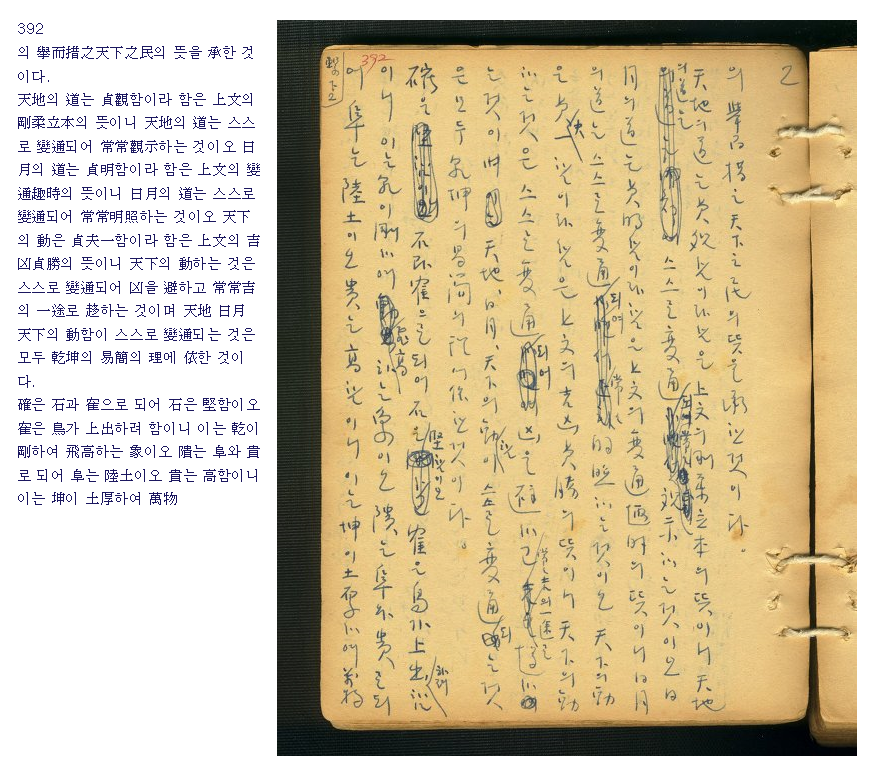 392
의 擧而措之天下之民의 뜻을 承한 것
이다.
天地의 道는 貞觀함이라 함은 上文의
剛柔立本의 뜻이니 天地의 道는 스스
로 變通되어 常常觀示하는 것이오 日
月의 道는 貞明함이라 함은 上文의 變
通趣時의 뜻이니 日月의 道는 스스로
變通되어 常常明照하는 것이오 天下
의 動은 貞夫一함이라 함은 上文의 吉
凶貞勝의 뜻이니 天下의 動하는 것은
스스로 變通되어 凶을 避하고 常常吉
의 一途로 趍하는 것이며 天地 日月
天下의 動함이 스스로 變通되는 것은
모두 乾坤의 易簡의 理에 依한 것이
다.
確은 石과 隺으로 되어 石은 堅함이오
隺은 鳥가 上出하려 함이니 이는 乾이
剛하여 飛高하는 象이오 隤는 阜와 貴
로 되어 阜는 陸土이오 貴는 高함이니
이는 坤이 土厚하여 萬物
2
의 擧而措之天下之民의 뜻을 承한 것이다。
天地의 道는 貞觀함이라 함은 上文의 剛柔立本의 뜻이니 天地
의 道는 스스로 變通되어 常常觀示하는 것이오 日
月의 道는 貞明함이라 함은 上文의 變通趣時의 뜻이니 日月
의 道는 스스로 變通되여 常常明照하는 것이오 天下의 動
은 貞夫一함이라 함은 上文의 吉凶貞勝의 뜻이니 天下의 動
하는 것은 스스로 變通되어 凶을 避하고 常常吉의 一途로 趍하
는 것이며 天地、日月、天下의 動함이 스스로 變通되는 것
은 모두 乾坤의 易簡의 理에 依한 것이다。
確은 石과 隺으로 되어 石은 堅함이오 隺은 鳥가 上出하려 함
이니 이는 乾이 剛하여 飛高하는 象이오 隤는 阜와 貴로 되
어 阜는 陸土이오 貴는 高함이니 이는 坤이 土厚하여 萬物
392
繫下2